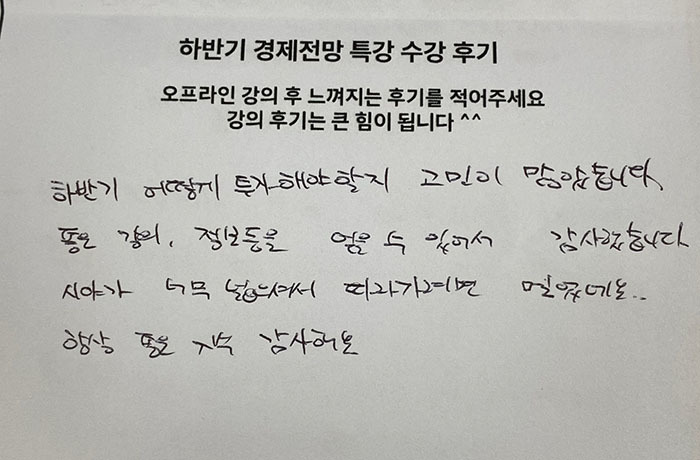 하반기 경제전망 특강 수강 후기
오프라인 강의 후 느껴지는 후기를 적어주세요
강의 후기는 큰 힘이 됩니다 ^^
하반기 어떻게 투자해야할지 고민이 많았습니다.
좋은 강의, 정보들을 얻을 수 있어서 감사했습니다
시야가 너무 넓으셔서 따라가려면 멀었네요..
항상 좋은 감사해요